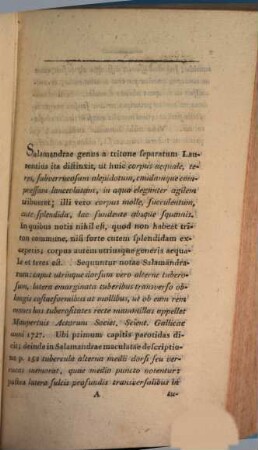 Salamandrae genus a tritone separatum Lau-
rentius ita distinxit, ut huic corpus aequale, te-
res, subverrucosum alepidotum, caudamque com-
pressam lanceolatam, in aqua eleganter agilem
tribueret; illi vero corpus molle, succulentum,
cute splendida, lac fundente absque squamis.
In quibus notis nihil est, quod non habeat tri-
ton commune, nisi forte cutem splendidam ex-
ceperis; corpus autem utriusque generis aequa-
le et teres est. Sequuntur notae Salamandra-
rum: caput utrinque dorsum vero alterne tubero-
sum, latera emarginata tuberibus transverso ob-
longis costaeformibus at mollibus, ut ob eam rem
nemo has tuberositates recte mammillas appellet
Maupertuis Actorum Societ. Scient. Gallicae
anni 1727. Ubi primum capitis parotidas di-
cit; deinde in Salamandrae maculatae descriptio-
ne p. 152 tubercula alterna medii dorsi seu ver-
rucas memorat, quae medio puncto notentur;
latera sulcis profundis transversalibus in
A du-